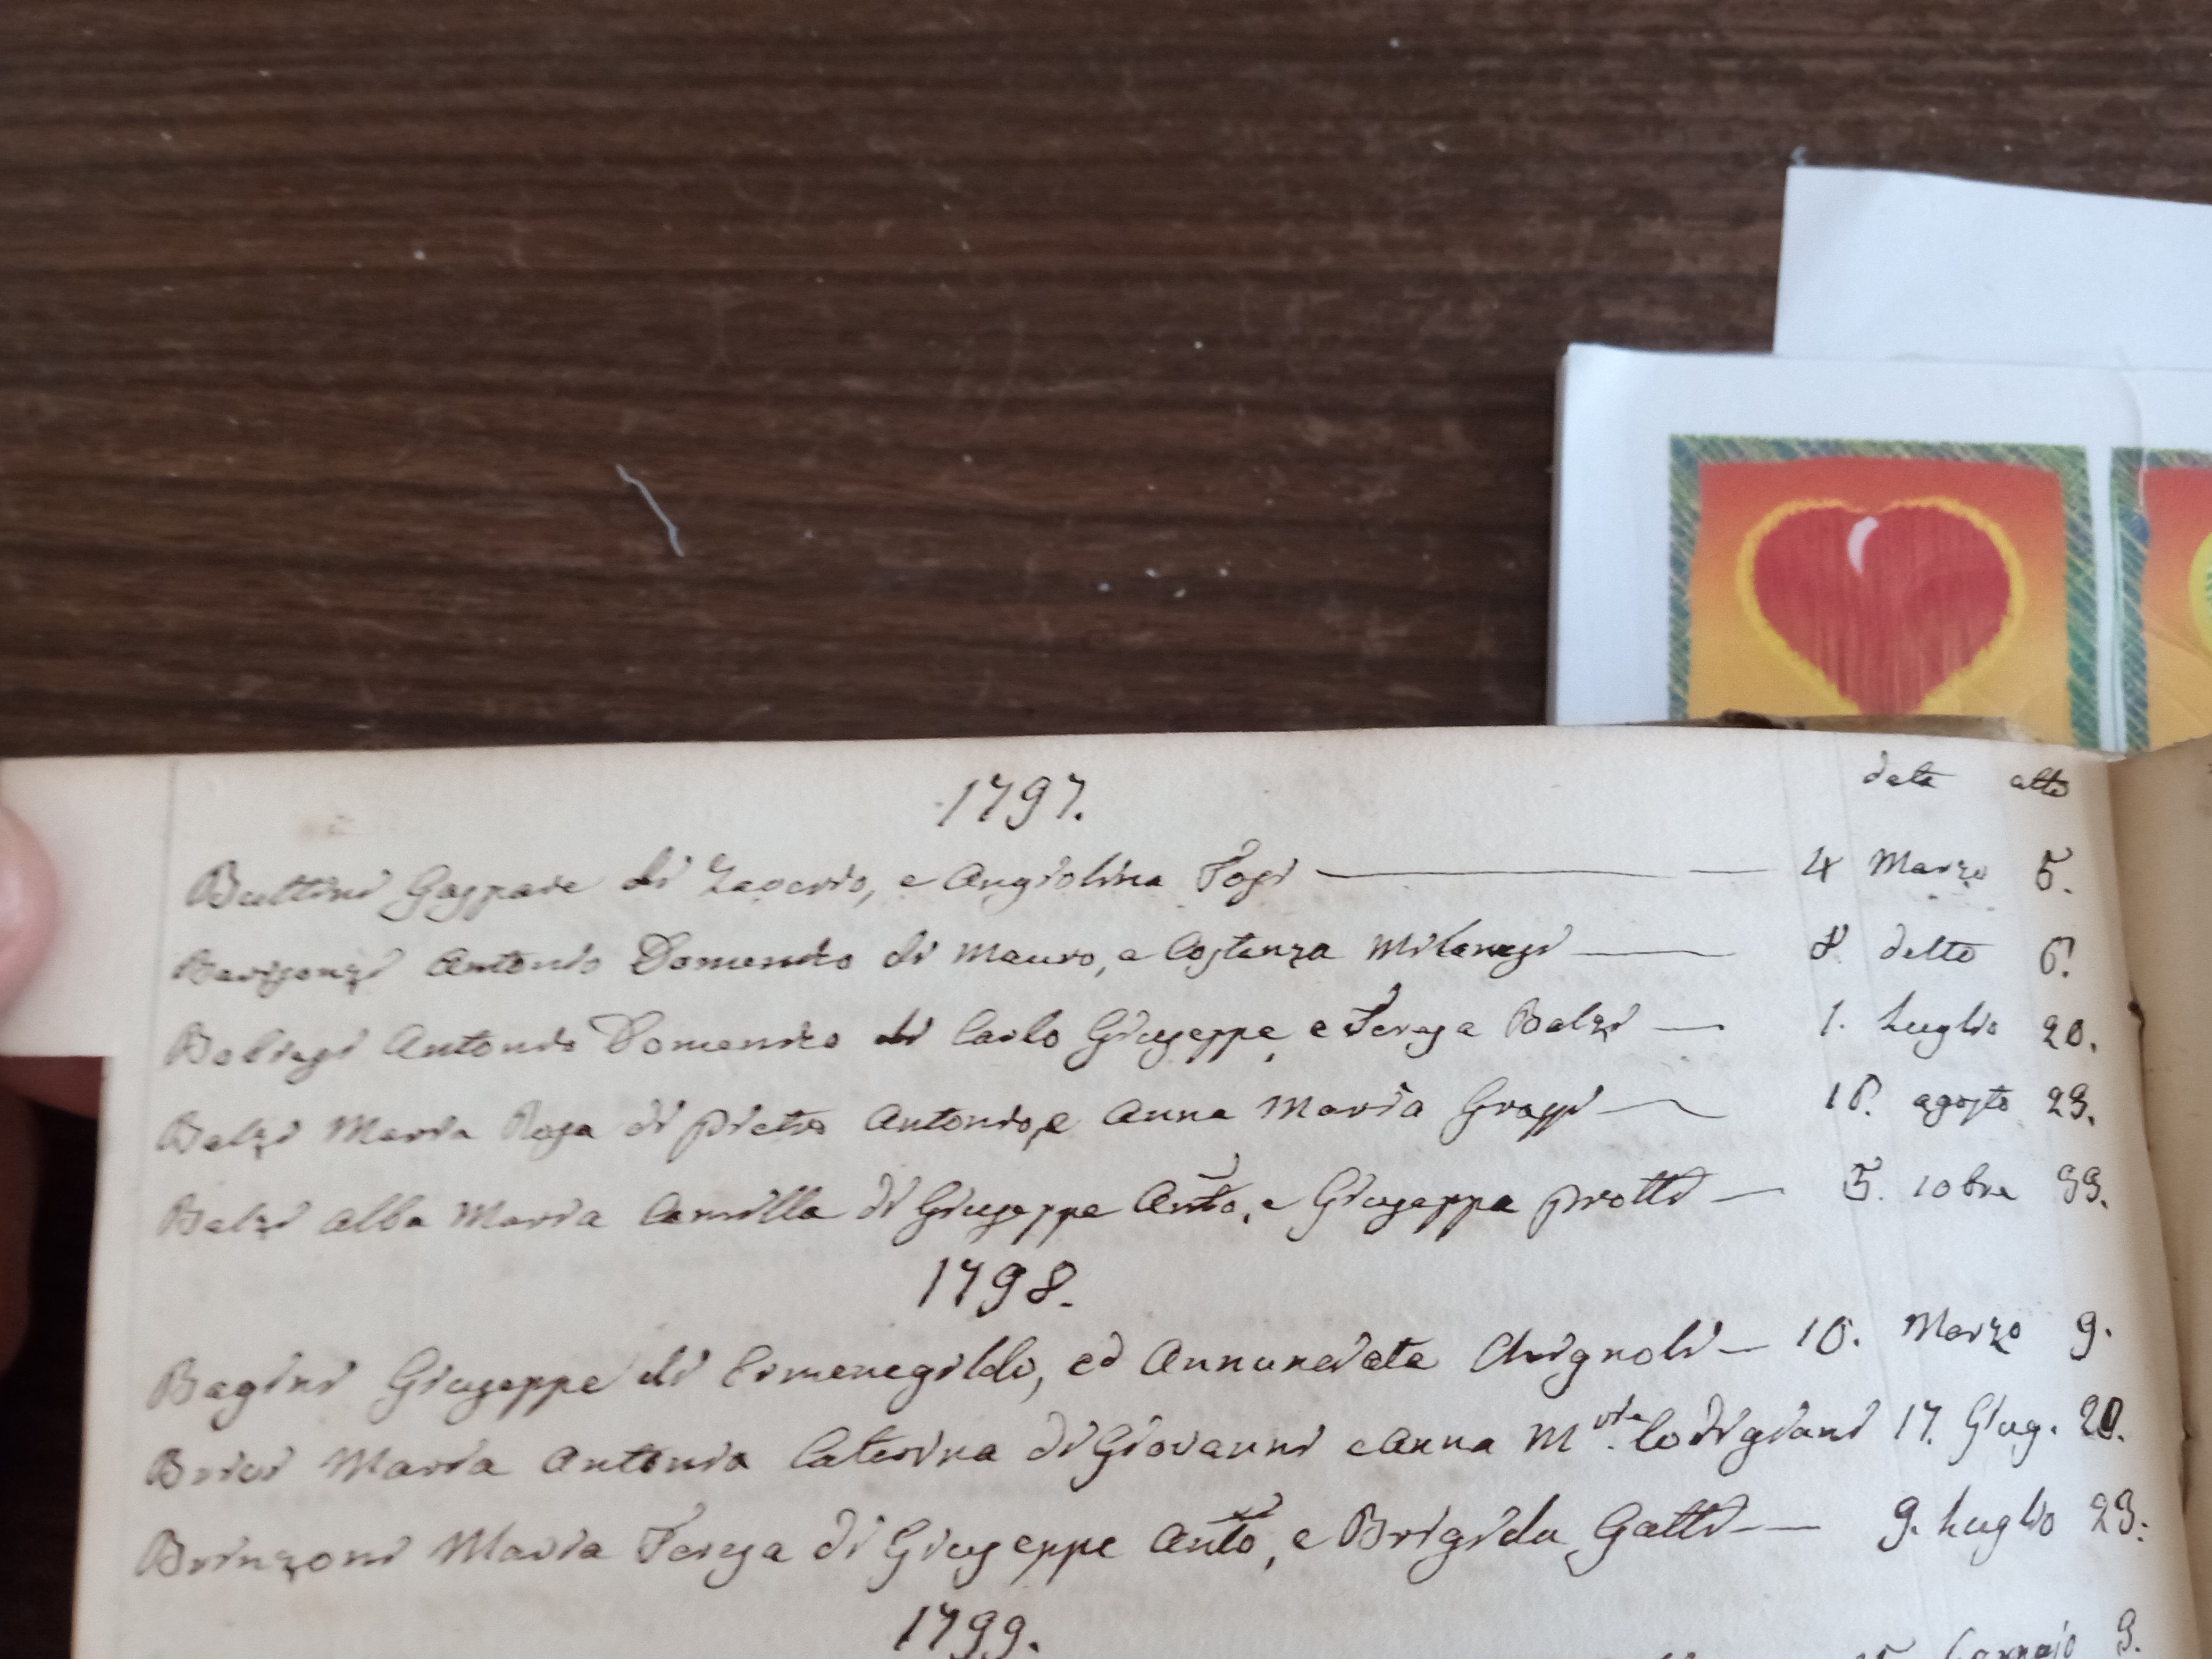 1797. data atto
Buttini Gaspare di Zaverio, e Angiolina Fosi — 4 Marzo 5.
Barisonzi Antonio Domenico di Mauro, e Costanza Milanesi — 8. detto 6.
Bolzesi Antonio Domenico di Carlo Giuseppe, e Teresa Balzi — 1. Luglio 20.
Balzi Maria Rosa di Pietro Antonio, e Anna Maria Grossi — 16. agosto 23.
Balzi Alba Maria Camilla di Giuseppe Anto, e Giuseppa Protti — 5. 10bre 33.
1798.
Bagini Giuseppe di Ermenegildo, ed Annunciata Chignoli — 10. Marzo 9.
Brici Maria Antonia Caterina di Giovanni e Anna M. Lodigiani 17. Giug. 20.
Brinzoni Maria Teresa di Giuseppe Anto, e Brigida Gatti — 9. Luglio 23.
1799.
Gennajo 3.